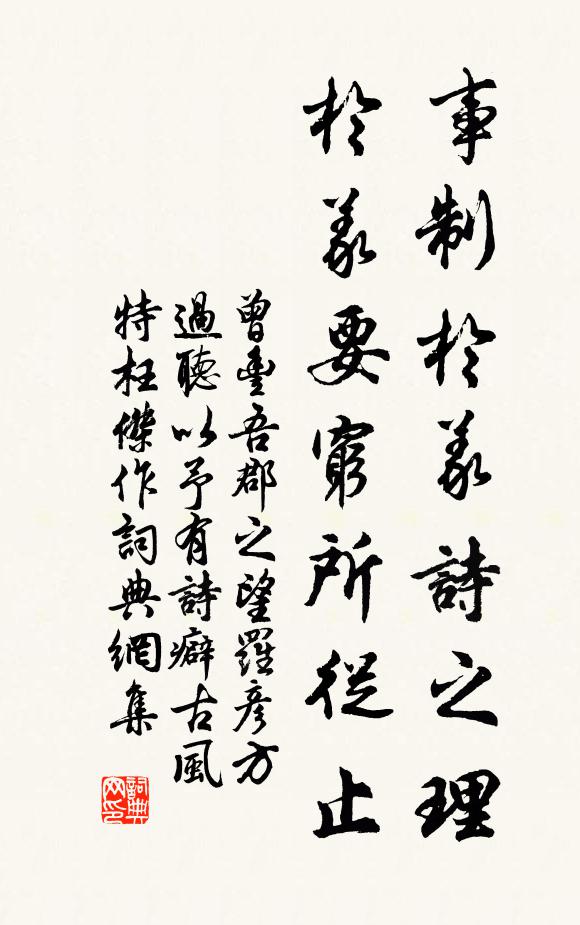 事制於義詩之理
於義要窮所從止
曾豐吾郡之望羅彥方
過聽以予有詩癖古風
特枉傑作詞典網集
詞典网印